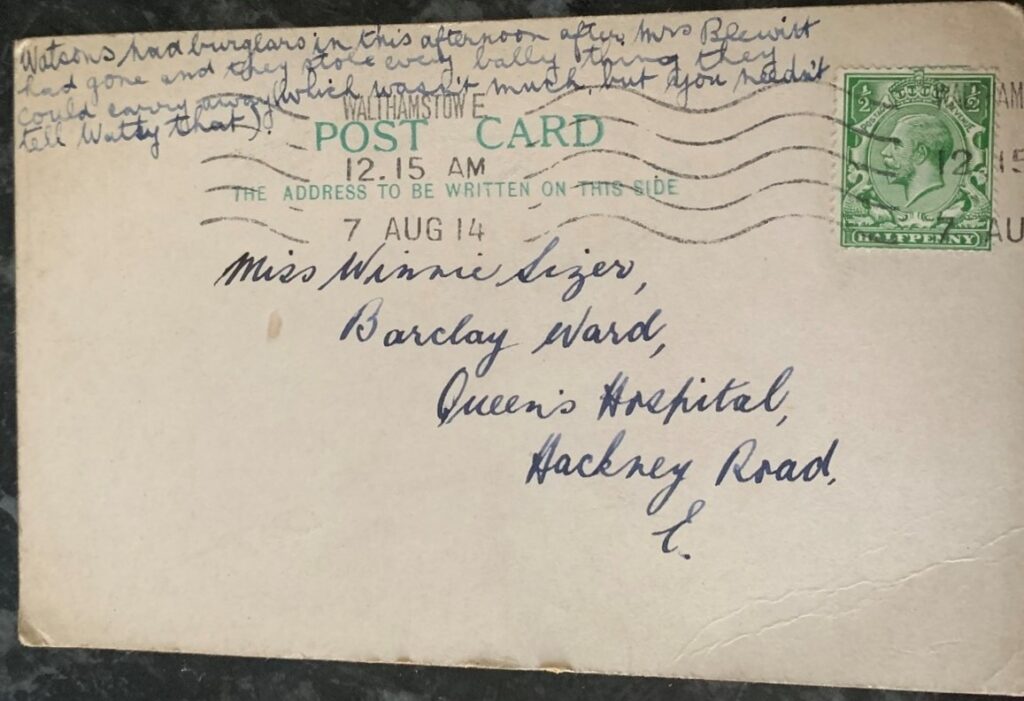 Watsons had burglars in this afternoon after Mrs Blewitt
had gone and they stole every bally thing they
could carry away (which wasn't much, but you needn't
tell Watty that).
WALTHAMSTOW E.
POST CARD
12.15 AM
THE ADDRESS TO BE WRITTEN ON THIS SIDE
7 AUG 14
½ ½
HALFPENNY
12.15
7 AU
Miss Winnie Sizer,
Barclay Ward,
Queen's Hospital,
Hackney Road,
E.